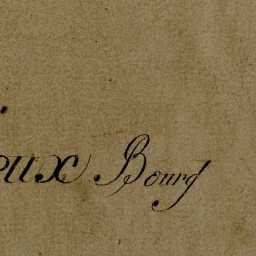 eux Bourg